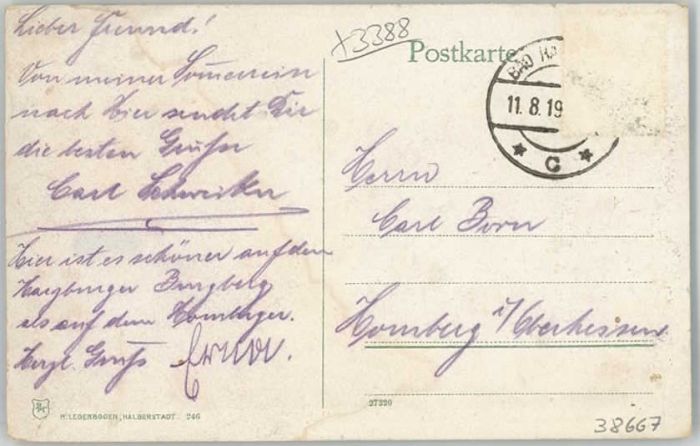 Lieber Freund!
Von meiner Sommerreise
nach hier sendet Dir
die besten Grüße
Carl Schweiker
Hier ist es schöner auf dem
Harzburger Burgberg
als auf dem Homberger.
Herzl. Gruß
x3388
Postkarte
BAD HA
11.8.19
* C *
Herrn
Carl Born
Homberg i/Oberhessen
H. LEDERBOGEN, HALBERSTADT. 246
27320
38667